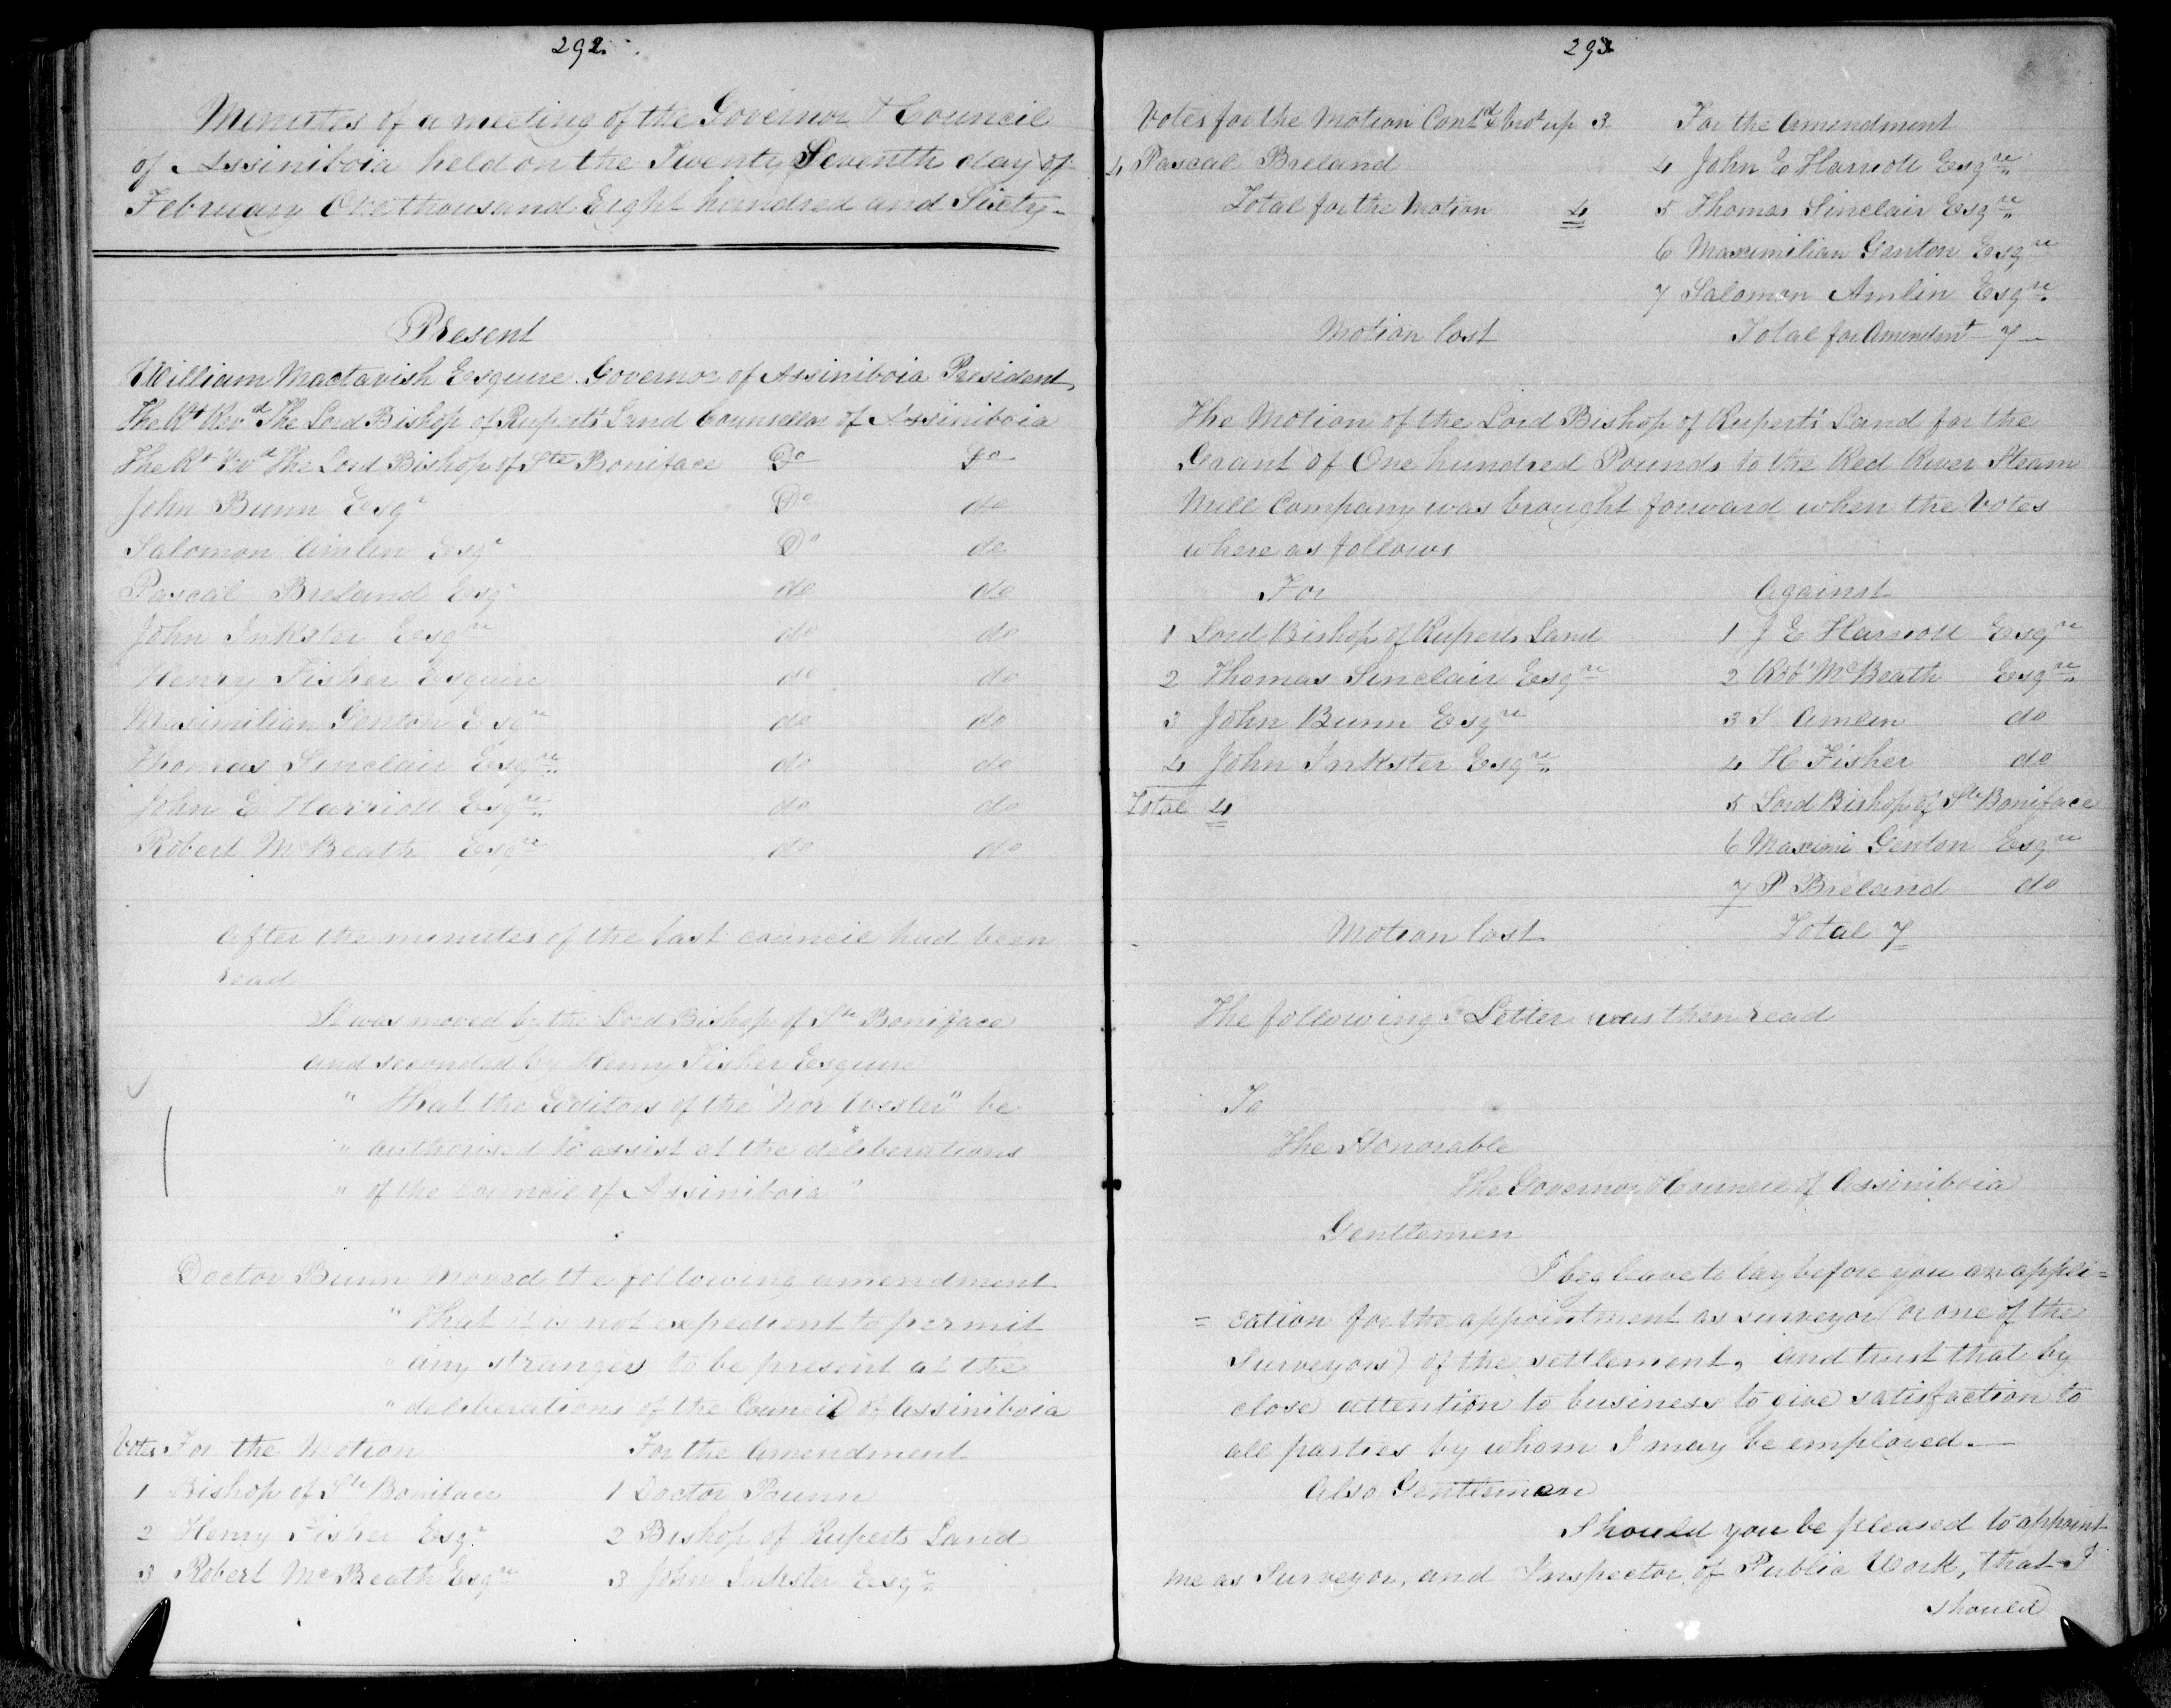 292.
Minutes of a meeting of the Governor & Council
of Assiniboia held on the Twenty Seventh day of
February One thousand Eight hundred and Sixty-
Present
William Mactavish Esquire. Governor of Assiniboia President,
The Rt Revd The Lord Bishop of Ruperts Land Counsellor of Assiniboia
The Rt Revd The Lord Bishop of Ste Boniface Do Do
John Bunn Esqr Do do
Salomon Amlin Esqr Do do
Pascal Breland Esqr do do
John Inkster Esqre do do
Henry Fisher Esquire do do
Maximilian Genton Esqre do do
Thomas Sinclair Esqre do do
John E Harriott Esqre do do
Robert McBeath Esqre do do
After the minutes of the last council had been
read
It was moved by the Lord Bishop of Ste Boniface
and seconded by Henry Fisher Esquire
" That the Editors of the "Nor Wester" be
" authorised to assist at the deliberations
" of the Council of Assiniboia"
Doctor Bunn moved the following amendment
" That it is not expedient to permit
" any stranger to be present at the
" deliberations of the Council of Assiniboia
Votes For the Motion For the Amendment
1 Bishop of Ste Boniface 1 Doctor Bunn
2 Henry Fisher Esqr 2 Bishop of Ruperts Land
3 Robert McBeath Esqre 3 John Inkster Esqre
293
Votes for the Motion Contd & brot up 3 For the Amendment
4 Pascal Breland 4 John E Harriott Esqre
Total for the Motion 4 5 Thomas Sinclair Esqre
6 Maximilian Genton Esqre
7 Salomon Amlin Esqre
Motion lost Total for Amendmt 7
The Motion of the Lord Bishop of Rupert's Land for the
Grant of One hundred Pounds to the Red River Steam
Mill Company was brought forward when the Votes
where as follows
For Against
1 Lord Bishop of Ruperts Land 1 J E Harriott Esqre
2 Thomas Sinclair Esqre 2 Robt McBeath Esqre
3 John Bunn Esqre 3 S Amlin do
4 John Inkster Esqre 4 H Fisher do
Total 4 5 Lord Bishop of Ste Boniface
6 Maximi Genton Esqre
7 P Breland do
Motion lost Total 7
The following Letter was then read
To
The Honorable
The Governor & Council of Assiniboia
Gentlemen
I beg leave to lay before you an appli=
= cation for the appointment as surveyor (or one of the
Surveyors) of the settlement, and trust that by
close attention to business to give satisfaction to
all parties by whom I may be employed.—
Also Gentlemen
Should you be pleased to appoint
me as Surveyor, and Inspector of Public Work, that I
should